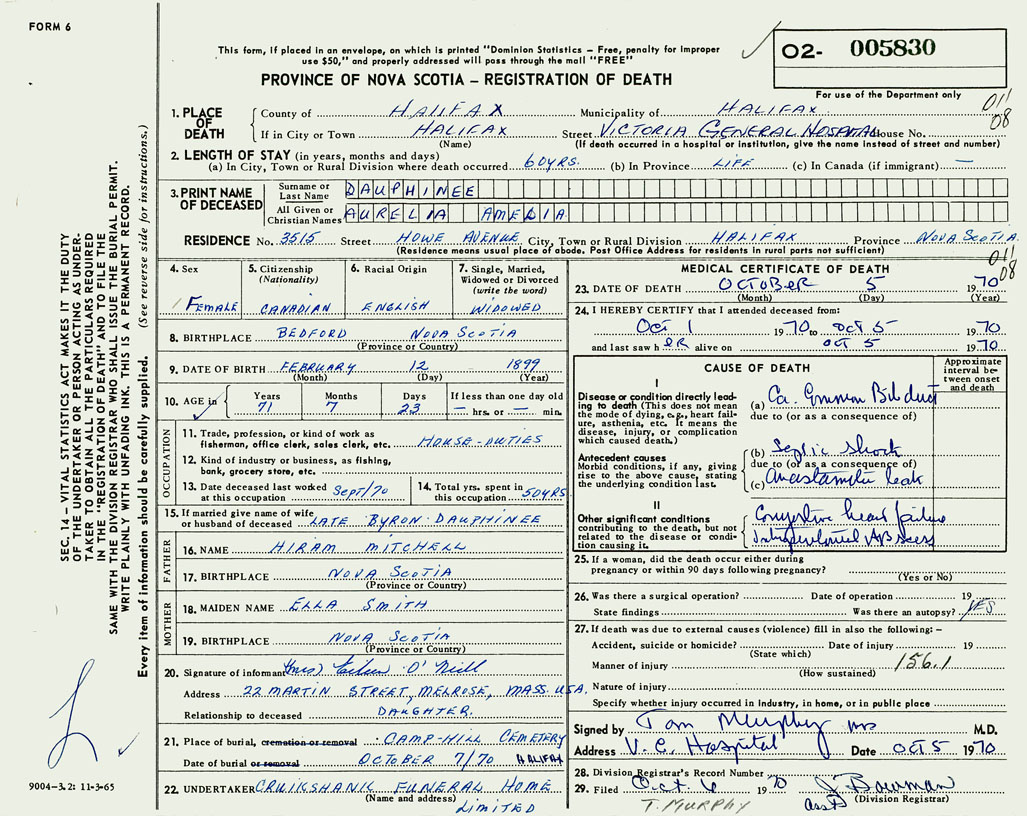 FORM 6
This form, if placed in an envelope, on which is printed "Dominion Statistics – Free, penalty for improper
use $50," and properly addressed will pass through the mail "FREE"
PROVINCE OF NOVA SCOTIA – REGISTRATION OF DEATH
O2- 005830
For use of the Department only
011
08
1. PLACE OF DEATH
County of HALIFAX Municipality of HALIFAX
If in City or Town HALIFAX Street VICTORIA GENERAL HOSPITAL House No.
(Name) (If death occurred in a hospital or institution, give the name instead of street and number)
2. LENGTH OF STAY (in years, months and days)
(a) In City, Town or Rural Division where death occurred 60 YRS. (b) In Province LIFE (c) In Canada (if immigrant) —
3. PRINT NAME OF DECEASED
Surname or Last Name DAUPHINEE
All Given or Christian Names AURELIA AMELIA
RESIDENCE No. 3515 Street HOWE AVENUE City, Town or Rural Division HALIFAX Province NOVA SCOTIA
(Residence means usual place of abode. Post Office Address for residents in rural parts not sufficient)
011
08
4. Sex FEMALE
5. Citizenship (Nationality) CANADIAN
6. Racial Origin ENGLISH
7. Single, Married, Widowed or Divorced (write the word) WIDOWED
8. BIRTHPLACE BEDFORD NOVA SCOTIA
(Province or Country)
9. DATE OF BIRTH FEBRUARY 12 1899
(Month) (Day) (Year)
10. AGE in Years 71 Months 7 Days 23 If less than one day old — hrs. or — min.
OCCUPATION
11. Trade, profession, or kind of work as
fisherman, office clerk, sales clerk, etc. HOUSE-DUTIES
12. Kind of industry or business, as fishing,
bank, grocery store, etc.
13. Date deceased last worked at this occupation SEPT/70
14. Total yrs. spent in this occupation 50 YRS
15. If married give name of wife
or husband of deceased LATE BYRON DAUPHINEE
FATHER
16. NAME HIRAM MITCHELL
17. BIRTHPLACE NOVA SCOTIA
(Province or Country)
MOTHER
18. MAIDEN NAME ELLA SMITH
19. BIRTHPLACE NOVA SCOTIA
(Province or Country)
20. Signature of informant (Mrs) O'Neill
Address 22 MARTIN STREET, MELROSE, MASS. USA.
Relationship to deceased DAUGHTER.
21. Place of burial, cremation or removal CAMP-HILL CEMETERY
Date of burial or removal OCTOBER 7/70 HALIFAX
22. UNDERTAKER CRUIKSHANK FUNERAL HOME
(Name and address) LIMITED
MEDICAL CERTIFICATE OF DEATH
23. DATE OF DEATH OCTOBER 5 1970
(Month) (Day) (Year)
24. I HEREBY CERTIFY that I attended deceased from:
Oct 1 1970 to Oct 5 1970
and last saw h ER alive on Oct 5 1970
CAUSE OF DEATH
Approximate interval between onset and death
I
Disease or condition directly lead-
ing to death (This does not mean
the mode of dying, e.g., heart fail-
ure, asthenia, etc. It means the
disease, injury, or complication
which caused death.)
(a) Ca. Common Bile duct
due to (or as a consequence of)
Antecedent causes
Morbid conditions, if any, giving
rise to the above cause, stating
the underlying condition last.
(b) Septic Shock
due to (or as a consequence of)
(c) Anastamotic leak
II
Other significant conditions
contributing to the death, but not
related to the disease or condi-
tion causing it.
Congestive heart failure
Abscess
25. If a woman, did the death occur either during
pregnancy or within 90 days following pregnancy?
(Yes or No)
26. Was there a surgical operation? Date of operation 19
State findings Was there an autopsy? YES
27. If death was due to external causes (violence) fill in also the following: –
Accident, suicide or homicide? Date of injury 19
(State which)
Manner of injury 156.1
(How sustained)
Nature of injury
Specify whether injury occurred in industry, in home, or in public place
Signed by Tom Murphy M.D.
Address V. G. Hospital Date Oct 5 1970
28. Division Registrar's Record Number
29. Filed Oct. 6 1970 J. Bowman
T. MURPHY Asst (Division Registrar)
SEC. 14 – VITAL STATISTICS ACT MAKES IT THE DUTY
OF THE UNDERTAKER OR PERSON ACTING AS UNDER-
TAKER TO OBTAIN ALL THE PARTICULARS REQUIRED
IN THE "REGISTRATION OF DEATH" AND TO FILE THE
SAME WITH THE DIVISION REGISTRAR WHO SHALL ISSUE THE BURIAL PERMIT.
WRITE PLAINLY WITH UNFADING INK. THIS IS A PERMANENT RECORD.
Every item of information should be carefully supplied. (See reverse side for instructions.)
9004-3.2: 11-3-65